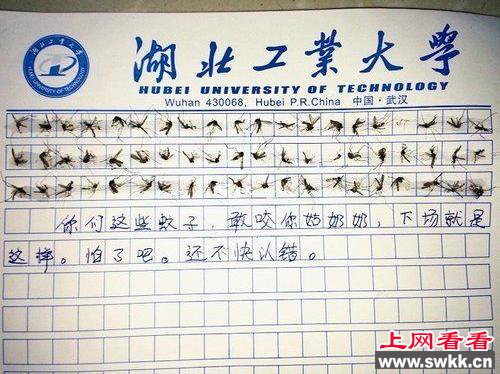 湖北工業大學
HUBEI UNIVERSITY OF TECHNOLOGY
Wuhan 430068, Hubei P.R.China 中国·武汉
你们这些蚊子，敢咬你姑奶奶，下场就是
这样。怕了吧。还不快认错。
上网看看
www.swkk.cn